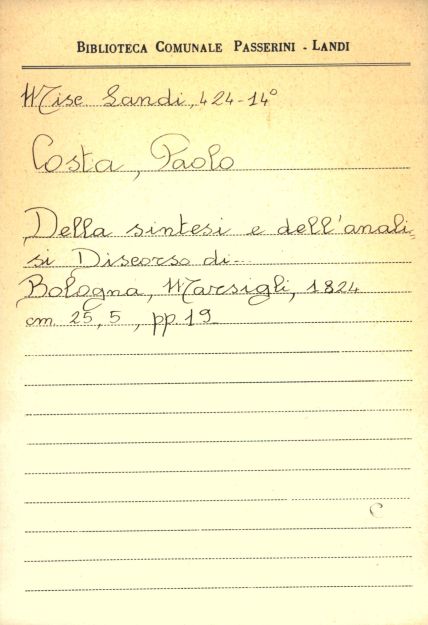 BIBLIOTECA COMUNALE PASSERINI - LANDI
Misc Landi, 424-14°
Costa, Paolo
Della sintesi e dell'anali=
si Discorso di...
Bologna, Marsigli, 1824
cm. 25,5, pp.19
C